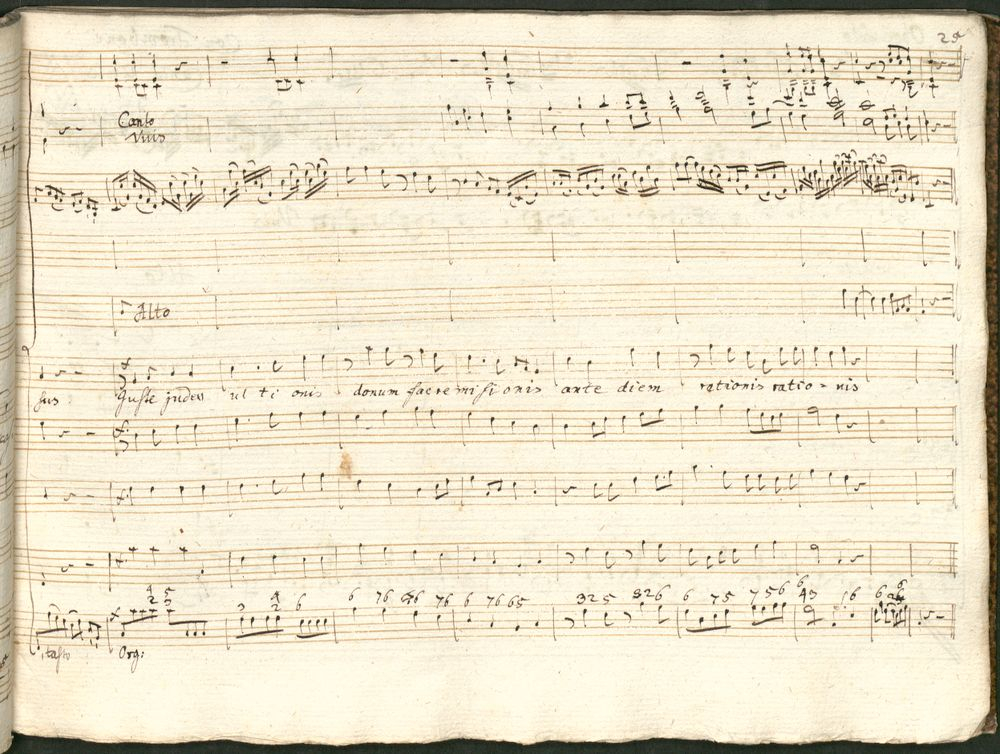 29
Canto
Vnis
Alto
sus Juste judex ul ti onis donum fac remisi onis ante diem rationis ratio - nis
4 5
2 3
4
2 6
6 76 76 76 6 76 65 325 326 6 75 756 6
43 6 6
tasto Org: